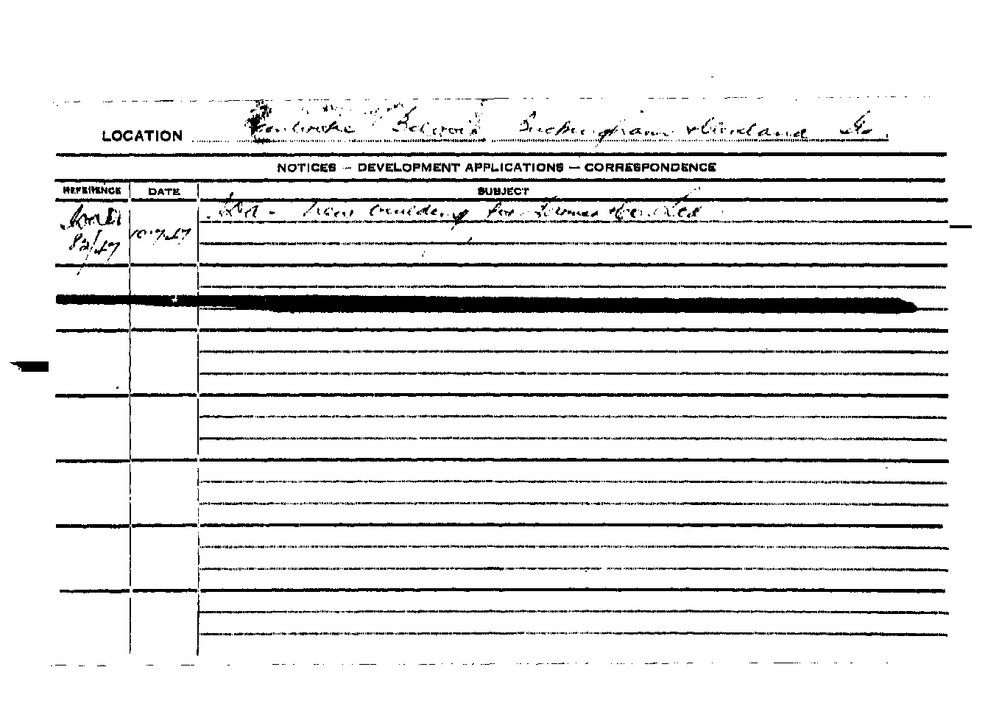 LOCATION Pembroke Belvoir Buckingham & Cleveland Sts.
NOTICES – DEVELOPMENT APPLICATIONS – CORRESPONDENCE
REFERENCE DATE SUBJECT
New building for Ltd
82/47 10-7-47